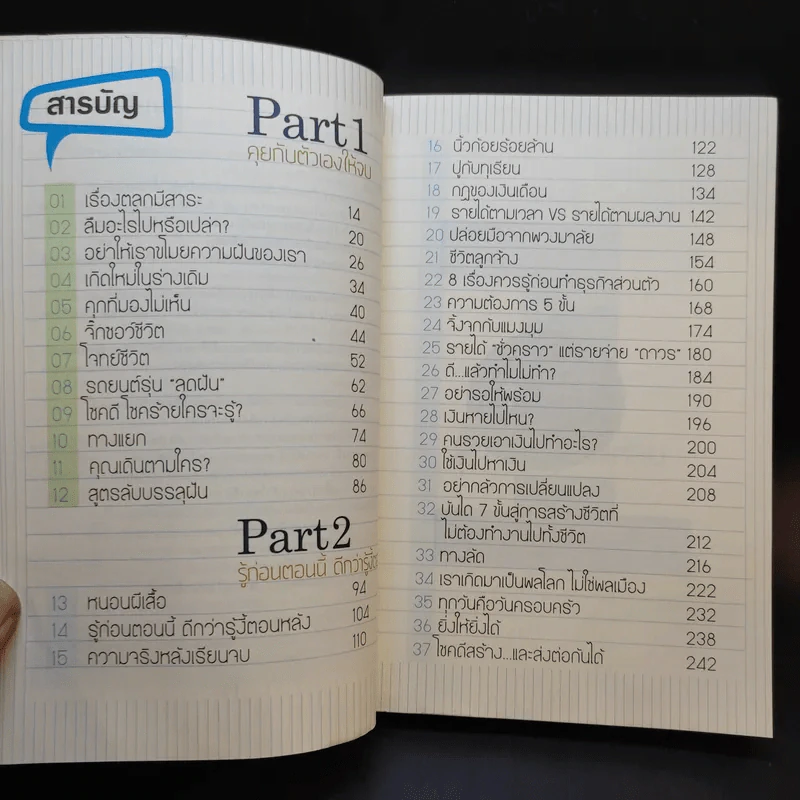 สารบัญ
Part 1
คุยกับตัวเองให้จบ
01 เรื่องตลกมีสาระ 14
02 ลืมอะไรไปหรือเปล่า? 20
03 อย่าให้เราขโมยความฝันของเรา 26
04 เกิดใหม่ในร่างเดิม 34
05 คุกที่มองไม่เห็น 40
06 จิ๊กซอว์ชีวิต 44
07 โจทย์ชีวิต 52
08 รถยนต์รุ่น "ลุดฝัน" 62
09 โชคดี โชคร้ายใครจะรู้? 66
10 ทางแยก 74
11 คุณเดินตามใคร? 80
12 สูตรลับบรรลุฝัน 86
Part 2
รู้ก่อนตอนนี้ ดีกว่ารู้งี้
13 หนอนผีเสื้อ 94
14 รู้ก่อนตอนนี้ ดีกว่ารู้งี้ตอนหลัง 104
15 ความจริงหลังเรียนจบ 110
16 นิ้วก้อยร้อยล้าน 122
17 ปูกับทุเรียน 128
18 กฎของเงินเดือน 134
19 รายได้ตามเวลา VS รายได้ตามผลงาน 142
20 ปล่อยมือจากพวงมาลัย 148
21 ชีวิตลูกจ้าง 154
22 8 เรื่องควรรู้ก่อนทำธุรกิจส่วนตัว 160
23 ความต้องการ 5 ขั้น 168
24 จิ้งจกกับแมงมุม 174
25 รายได้ "ชั่วคราว" แต่รายจ่าย "ถาวร" 180
26 ดี...แล้วทำไมไม่ทำ? 184
27 อย่ารอให้พร้อม 190
28 เงินหายไปไหน? 196
29 คนรวยเอาเงินไปทำอะไร? 200
30 ใช้เงินไปหาเงิน 204
31 อย่ากลัวการเปลี่ยนแปลง 208
32 บันได 7 ขั้นสู่การสร้างชีวิตที่
ไม่ต้องทำงานไปทั้งชีวิต 212
33 ทางลัด 216
34 เราเกิดมาเป็นพลโลก ไม่ใช่พลเมือง 222
35 ทุกวันคือวันครอบครัว 232
36 ยิ่งให้ยิ่งได้ 238
37 โชคดีสร้าง...และส่งต่อกันได้ 242